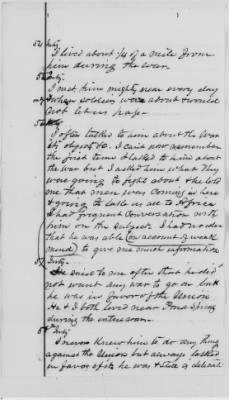 52 Inty.
I lived about 1/4 of a mile from
him during the war.
Inty.
I met him mighty near every day
when soldiers were about & would
not let us pass.
Inty.
I often talked to him about the War
its objects &c. I can't now remember
the first time I talked to him about
the war but I asked him what they
were going to fight about & he told
me that men was coming in here
& going to take us all to Africa
I had frequent conversation with
him on the subject. I had no idea
that he was able (on account of weak
mind) to give me much information
Inty.
He said to me often that he did
not want any war to go on but
he was in favor of the Union
He & I both lived near
during the entire war.
Inty
I never knew him to do any thing
against the Union but always talked
in favor of it. he was